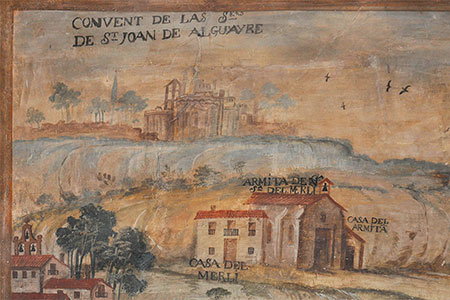 CONVENT DE LAS S.RS
DE S.T JOAN DE ALGUAYRE
ARMITA DE N.A
S.A DEL MERLI
CASA DEL
ARMITA
CASA DEL
MERLI